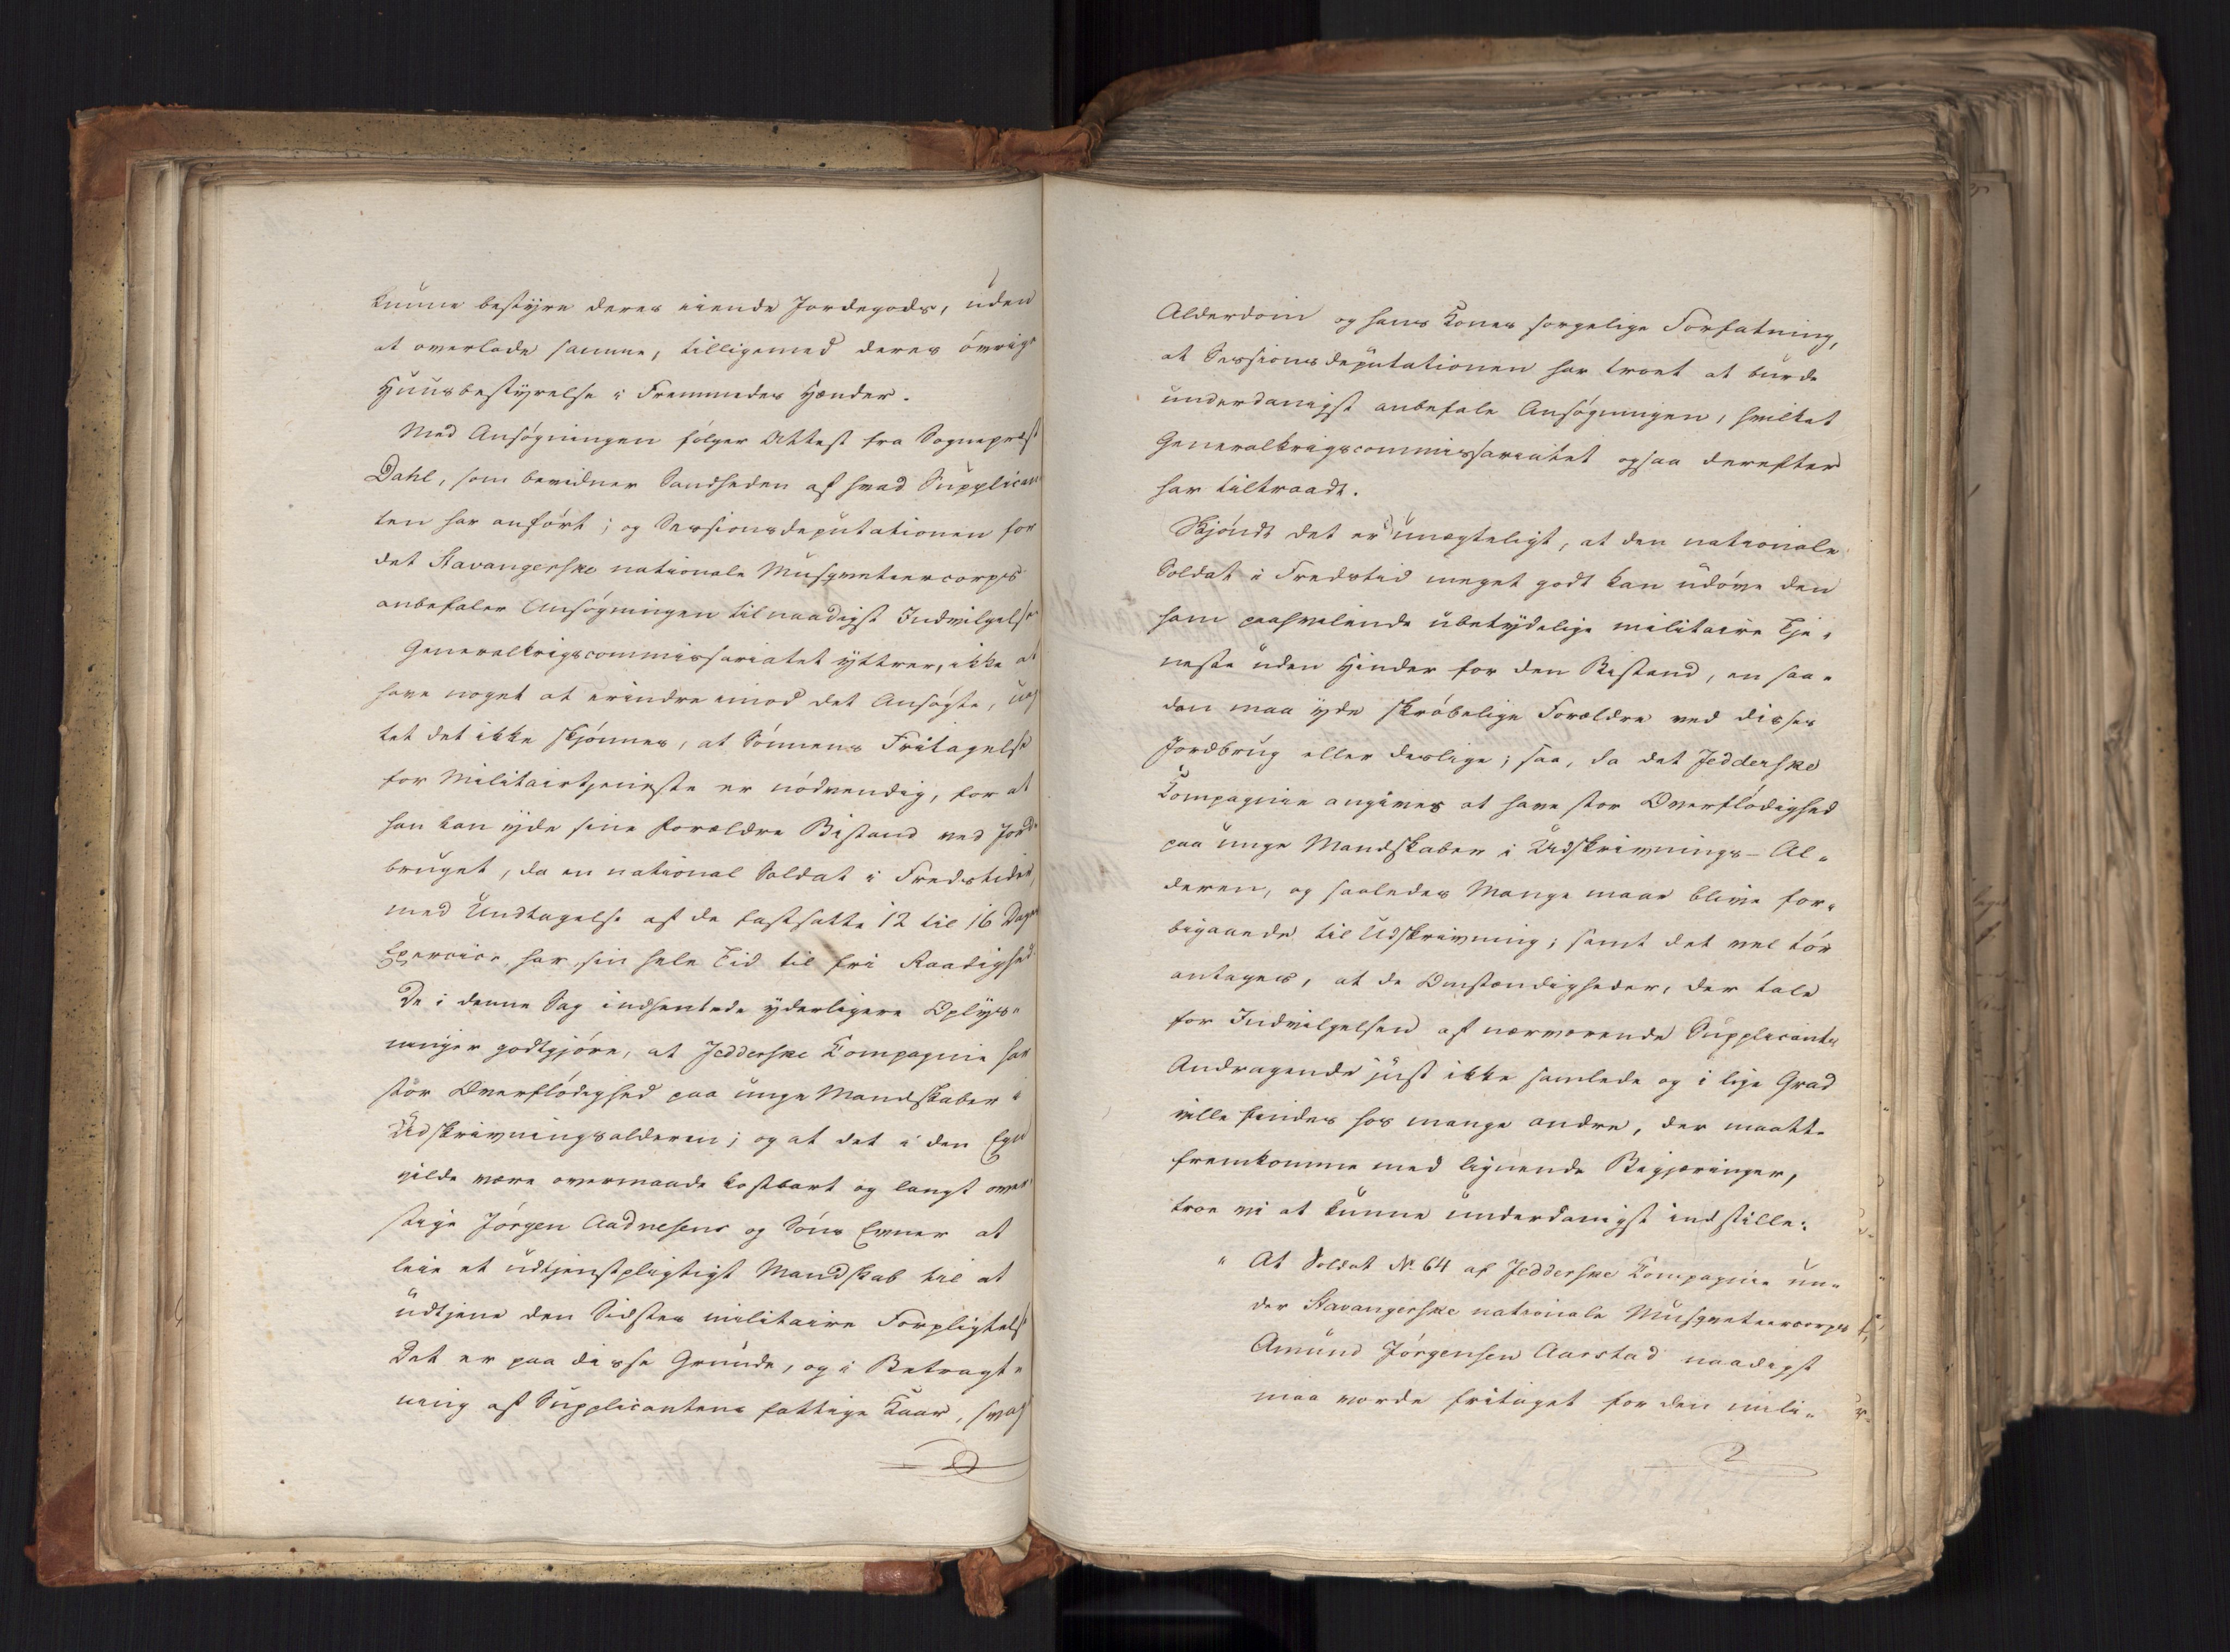 kunne bestyre deres eiende Jordegods, uden
at overlade samme, tilligemed deres øvrige
Huusbestyrelse i Fremmedes Hænder.
Med Ansøgningen følger Attest fra Sognepræst
Dahl, som bevidner Sandheden af hvad Supplican
ten har anført; og Sessionsdeputationen for
det Stavangerske nationale Musqueteercorps
anbefaler Ansøgningen til naadigst Indvilgelse
Generalkrigscommissariatet yttrer, ikke at
have noget at erindre imod det Ansøgte, uag
tet det ikke skjønnes, at Sønnens Fritagelse
for Militairtjeneste er nødvendig, for at
han kan yde sine Forældre Bistand ved Jord
bruget, da en national Soldat i Fredstider,
med Undtagelse af de fastsatte 12 til 16 Dages
Exercice, har sin hele Tid til fri Raadighed.
De i denne Sag indhentede yderligere Oplys-
ninger godtgjøre, at Jedderske Compagnie har
stor Overflødighed paa unge Mandskaber i
Udskrivningsalderen; og at det i den Egn
vilde være overmaade kostbart og langt over
stige Jørgen Aadnesens og Søns Evner at
leie et udtjenstpligtigt Mandskab til at
udtjene den Sidstes militaire Forpligtelse
Det er paa disse Grunde, og i Betragt-
ning af Supplicantens fattige Kaar, svag
Alderdom og hans Kones sørgelige Forfatning,
at Sessionsdeputationen har troet at burde
underdanigst anbefale Ansøgningen, hvilket
Generalkrigscommissariatet ogsaa derefter
har tiltraadt.
Skjøndt det er unægteligt, at den nationale
Soldat i Fredstid meget godt kan udøve den
ham paahvilende ubetydelige militaire Tje-
neste uden Hinder for den Bistand, en saa-
dan maa yde skrøbelige Forældre ved disses
Jordbrug eller deslige; saa, da det Jedderske
Compagnie angives at have stor Overflødighed
paa unge Mandskaber i Udskrivnings-Al-
deren, og saaledes Mange maae blive for-
bigaaede til Udskrivning; samt det vel tør
antages, at de Omstændigheder, der tale
for Indvilgelsen af nærværende Supplicants
Andragende just ikke samlede og i lige Grad
ville findes hos mange andre, der maatte
fremkomme med lignende Begjæringer,
troe vi at kunne underdanigst indstille:
" At Soldat No. 64 af Jedderske Compagnie un-
der Stavangerske nationale Musqueteercorps
Amund Jørgensen Aarstad naadigst
maa vorde fritaget for den mili-